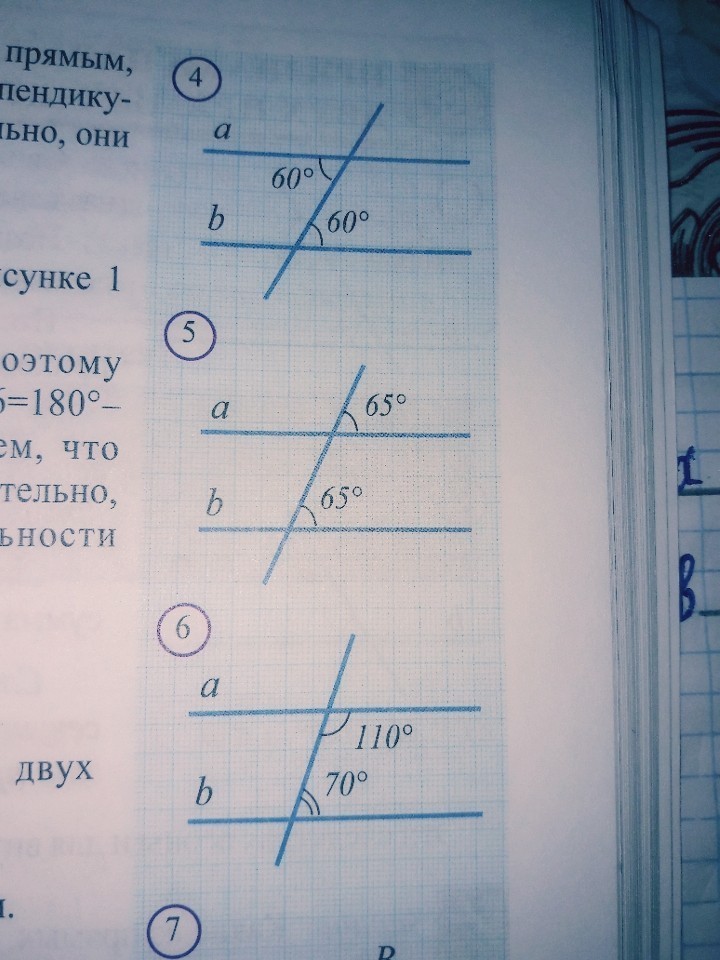 прямым,
пендику-
льно, они
сунке 1
оэтому
6=180°–
ем, что
тельно,
ьности
двух
4
a
60°
b
60°
5
a
65°
b
65°
6
a
110°
b
70°
7